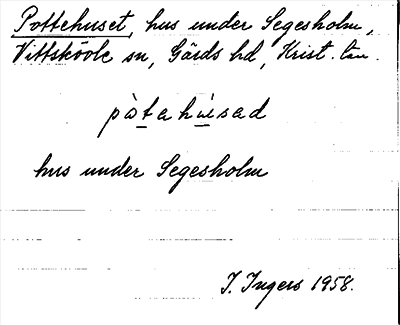 Pottehuset, hus under Segesholm,
Vittskövle sn, Gärds hd, Krist. län.
pòtahùsad
hus under Segesholm
I. Ingers 1958.